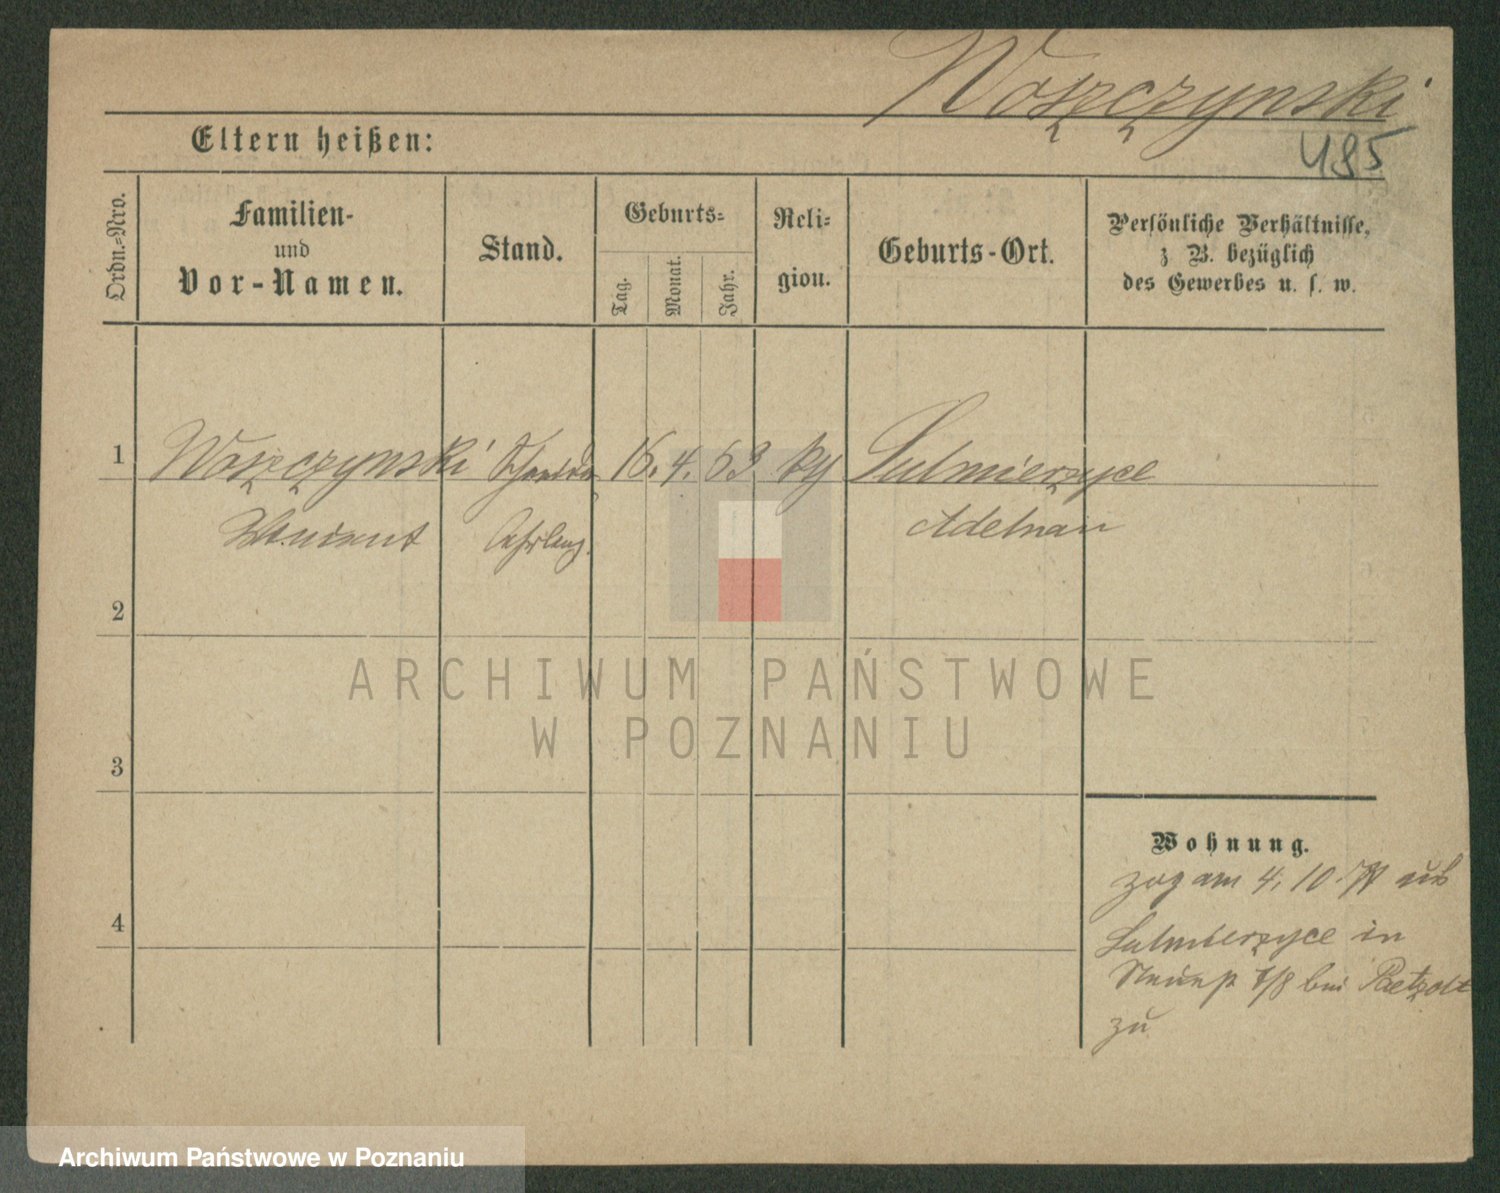 Woszczynski
485
Eltern heißen:
Ordn.=Nro.
Familien-
und
Vor-Namen.
Stand.
Geburts=
Tag.
Monat.
Jahr.
Reli=
gion.
Geburts-Ort.
Persönliche Verhältnisse,
z B. bezüglich
des Gewerbes u. s. w.
1
Woszczynski Schneider 16. 4. 63 kt Sulmierzyce
Lehrling. Adelnau
2
ARCHIWUM PAŃSTWOWE
W POZNANIU
3
Wohnung.
zog am 4. 10. 77 aus
Sulmierzyce in
7/8 bei Paetzolt
zu
4
Archiwum Państwowe w Poznaniu